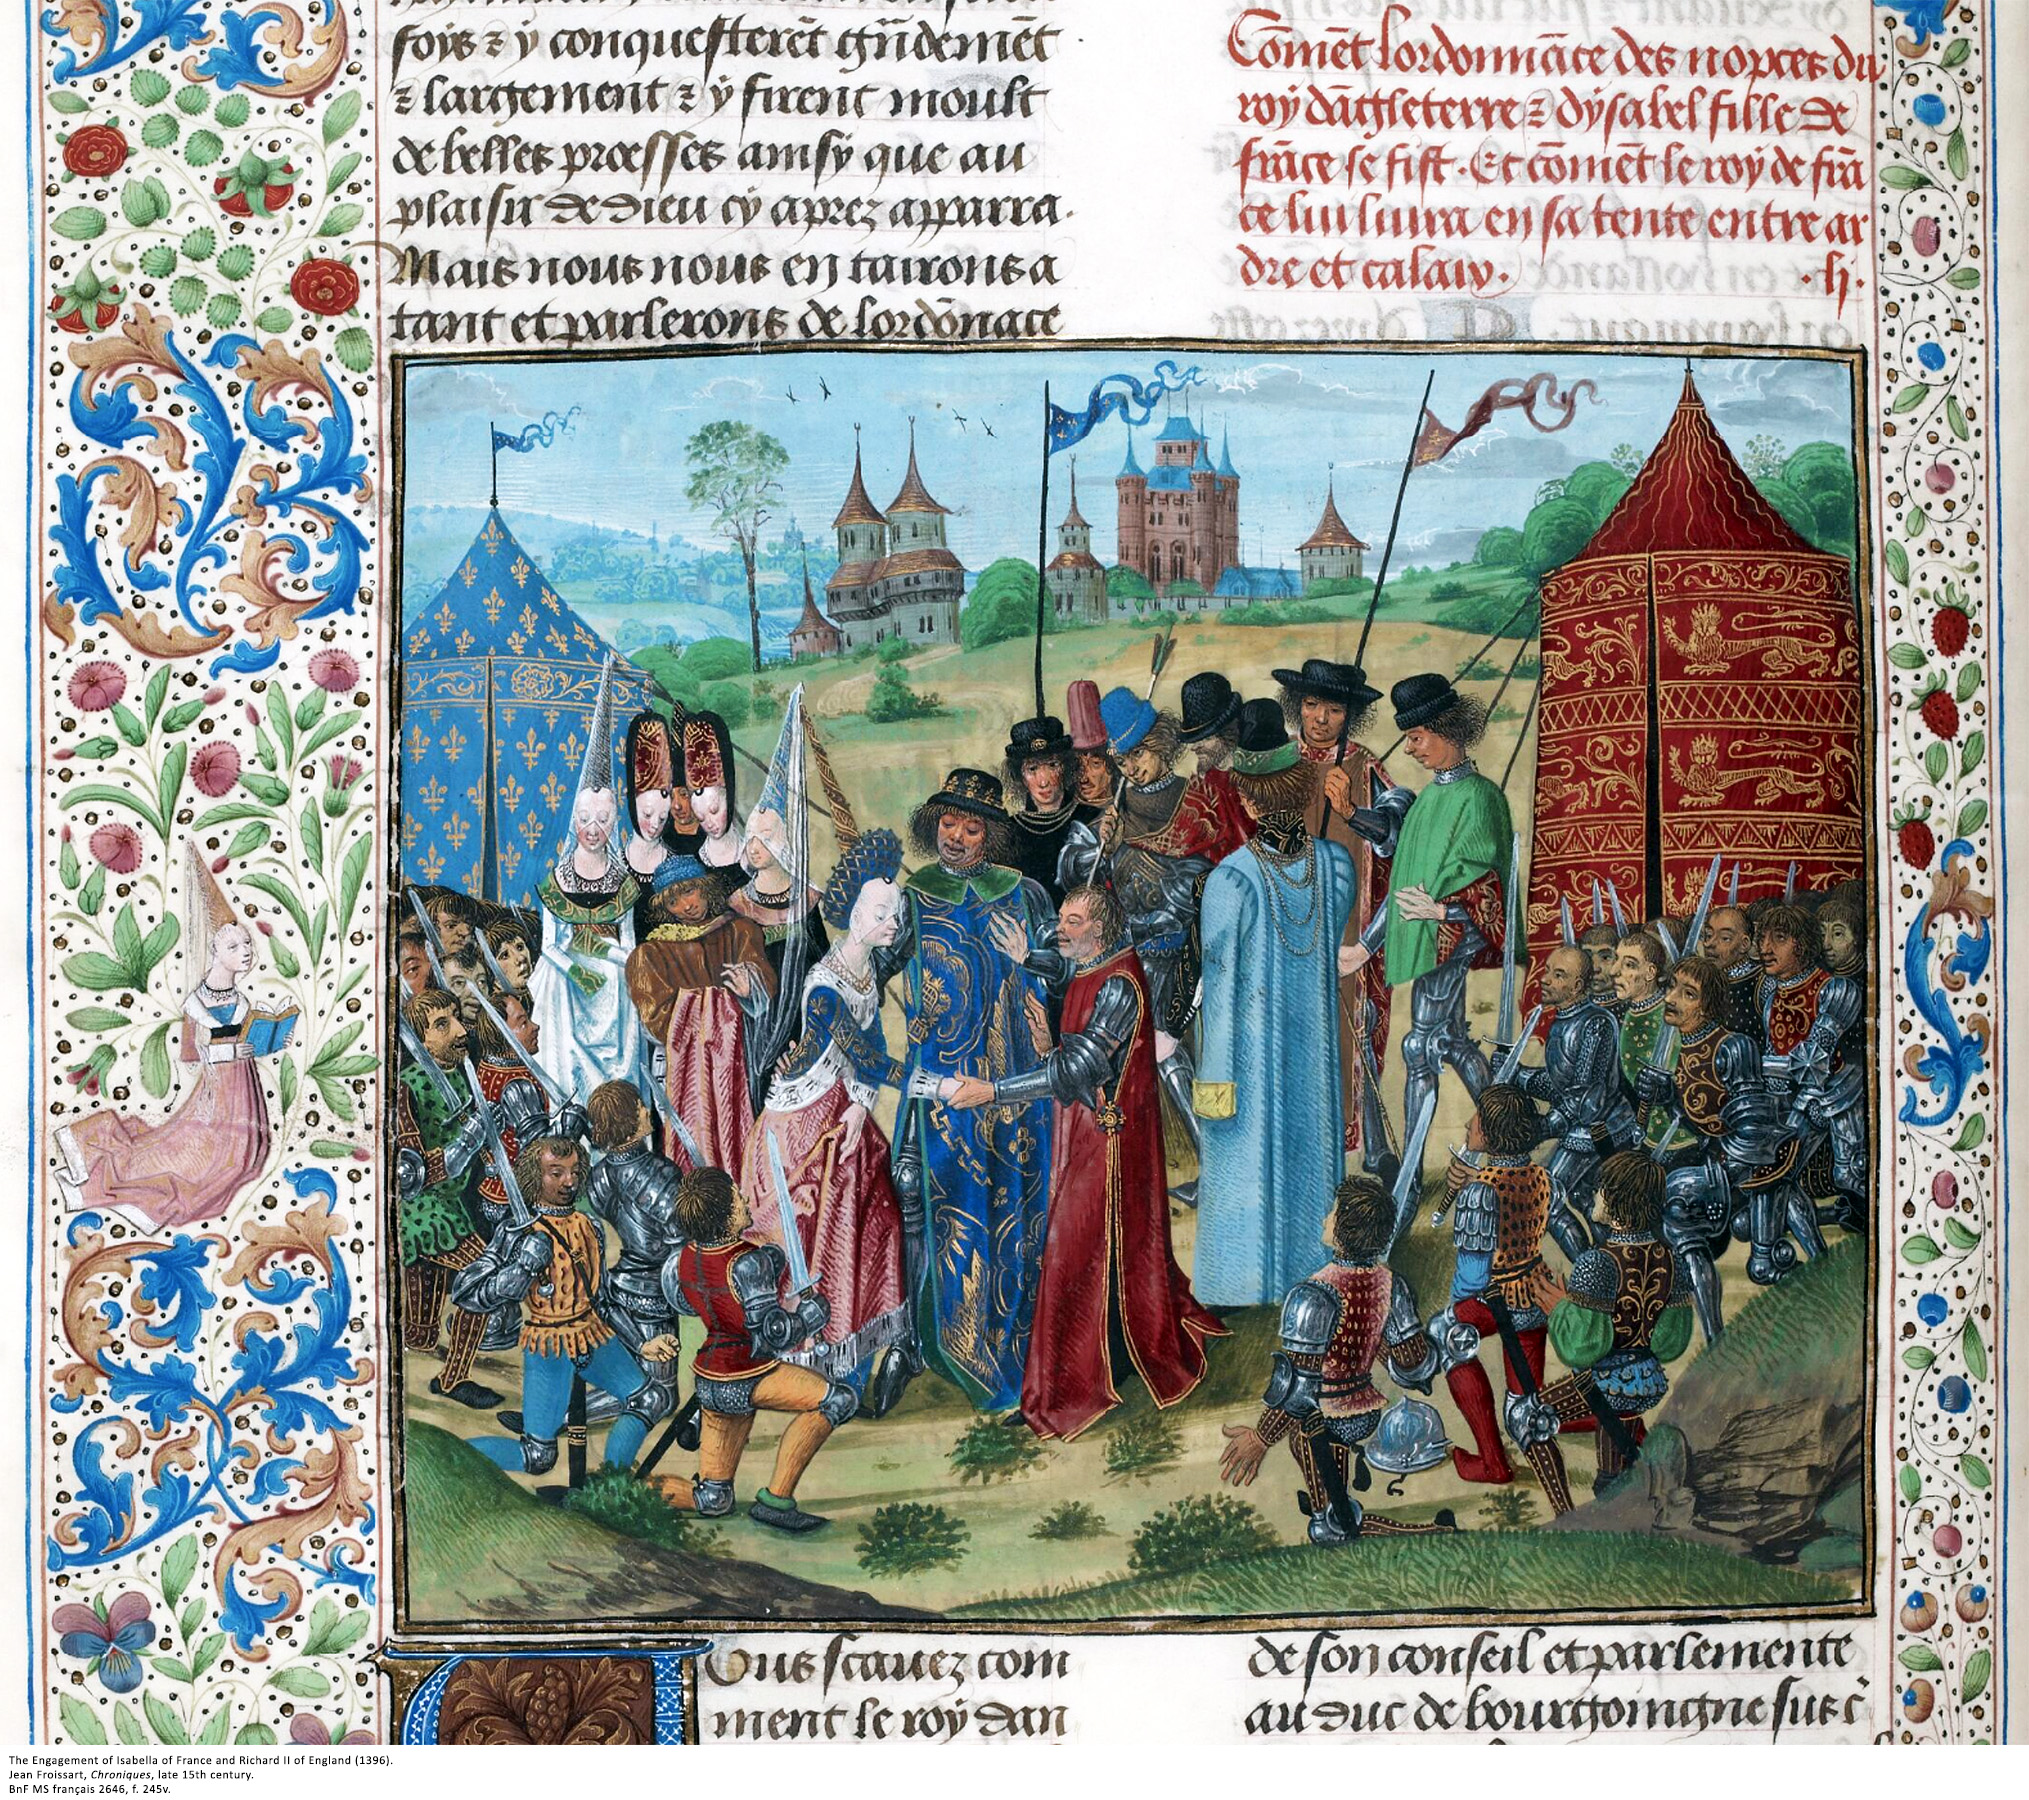 foys ⁊ y conquesterēt grādemēt
⁊ largement ⁊ y firent moult
de belles proesses ainsy que au
plaisir de dieu cy aprez apparra.
Mais nous nous en tairons a
tant et parlerons de lordōnāce
Cōmēt lordonnāce des nopces du
roy dāgleterre ⁊ dysabel fille de
frāce se fist. Et cōmēt le roy de frā
ce lui liura en sa tente entre ar
dre et calaix. .li.
Vous scauez com
ment le roy dan
de son conseil et parlemente
au duc de bourgoingne sus
The Engagement of Isabella of France and Richard II of England (1396).
Jean Froissart, Chroniques, late 15th century.
BnF MS français 2646, f. 245v.